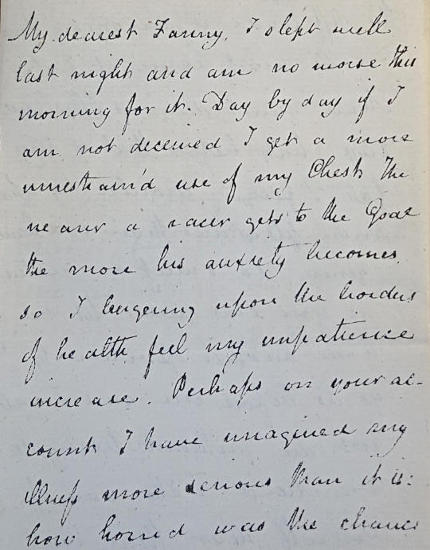 My dearest Fanny, I slept well
last night and am no worse this
morning for it. Day by day if I
am not deceived I get a more
unrestrain'd use of my Chest. The
nearer a racer gets to the Goal
the more his anxiety becomes
so I lingering upon the borders
of health feel my impatience
increase. Perhaps on your ac-
count I have imagined my
illness more serious than it is:
how horrid was the chance